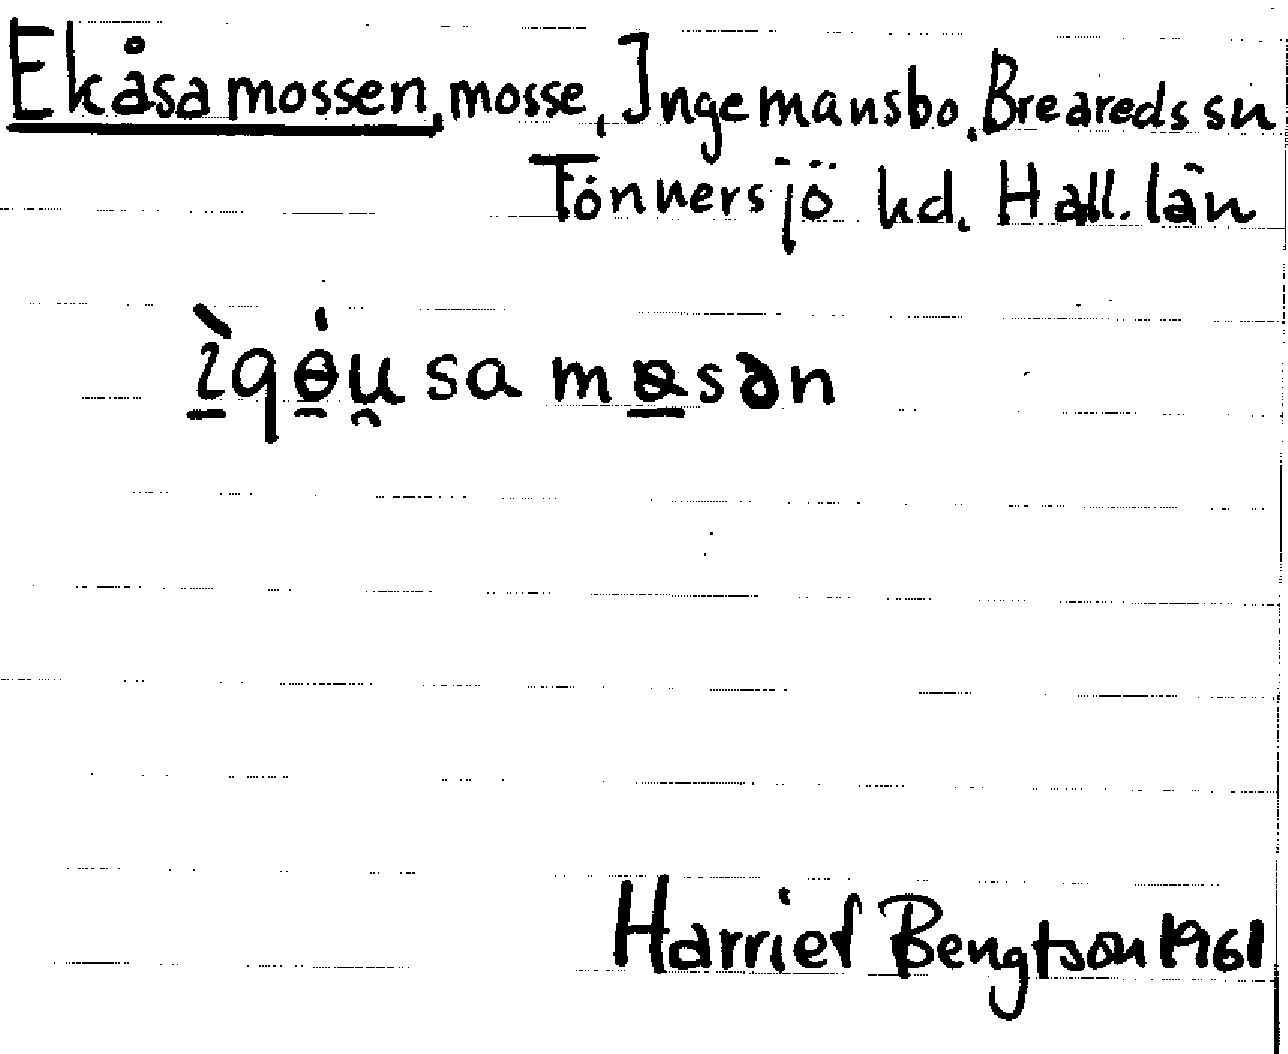 Ekåsamossen, mosse, Ingemansbo, Breareds sn
Tönnersjö hd. Hall. län
ı̱̀qɵ̱́u̯sa mɵ̱sən
Harriet Bengtson 1961